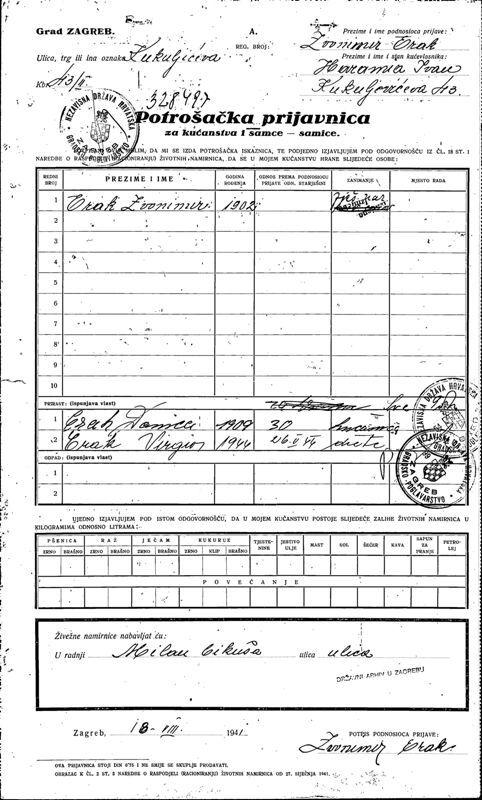 Grad ZAGREB.
A.
REG. BROJ:
Prezime i ime podnosioca prijave:
Zvonimir Erak
Ulica, trg ili ina oznaka Kukuljićeva
Prezime i ime i stan kućevlasnika:
Haramia Ivan
Kbr. 43/II
Kukuljevićeva 43
328497
NEZAVISNA DRŽAVA HRVATSKA
Potrošačka prijavnica
za kućanstva i samce — samice.
MOLIM, DA MI SE IZDA POTROŠAČKA ISKAZNICA, TE PODJEDNO IZJAVLJUJEM POD ODGOVORNOŠĆU IZ ČL. 18 ST. 1
NAREDBE O RASPODJELI (RACIONIRANJU) ŽIVOTNIH NAMIRNICA, DA SE U MOJEM KUĆANSTVU HRANE SLIJEDEĆE OSOBE:
REDNI BROJ PREZIME I IME GODINA ROĐENJA ODNOS PREMA PODNOSIOCU PRIJAVE ODN. STARJEŠINI ZANIMANJE MJESTO RADA
1 Erak Zvonimir 1902
2
3
4
5
6
7
8
9
10
PRIRAST: (ispunjava vlast)
1 Erak Danica 1909 30
2 Erak Virgio 1944 26.II 44 dijete
ODPAD: (ispunjava vlast)
1
2
NEZAVISNA DRŽAVA HRVATSKA
GRADSKO POGLAVARSTVO
ZAGREB
UJEDNO IZJAVLJUJEM POD ISTOM ODGOVORNOŠĆU, DA U MOJEM KUĆANSTVU POSTOJE SLIJEDEĆE ZALIHE ŽIVOTNIH NAMIRNICA U
KILOGRAMIMA ODNOSNO LITRAMA:
PŠENICA RAŽ JEČAM KUKURUZ TJESTENINE JESTIVO ULJE MAST SOL ŠEĆER KAVA SAPUN ZA PRANJE PETROLEJ
ZRNO BRAŠNO ZRNO BRAŠNO ZRNO BRAŠNO ZRNO KLIP BRAŠNO
POVEĆANJE
Živežne namirnice nabavljat ću:
U radnji Milan Cikuša ulica ulica
DRŽAVNI ARHIV U ZAGREBU
Zagreb, 18-VIII. 1941.
POTPIS PODNOSIOCA PRIJAVE:
Zvonimir Erak
OVA PRIJAVNICA STOJI DIN 0'75 I NE SMIJE SE SKUPLJE PRODAVATI.
OBRAZAC K ČL. 2 ST. 3 NAREDBE O RASPODJELI (RACIONIRANJU) ŽIVOTNIH NAMIRNICA OD 27. SIJEČNJA 1941.